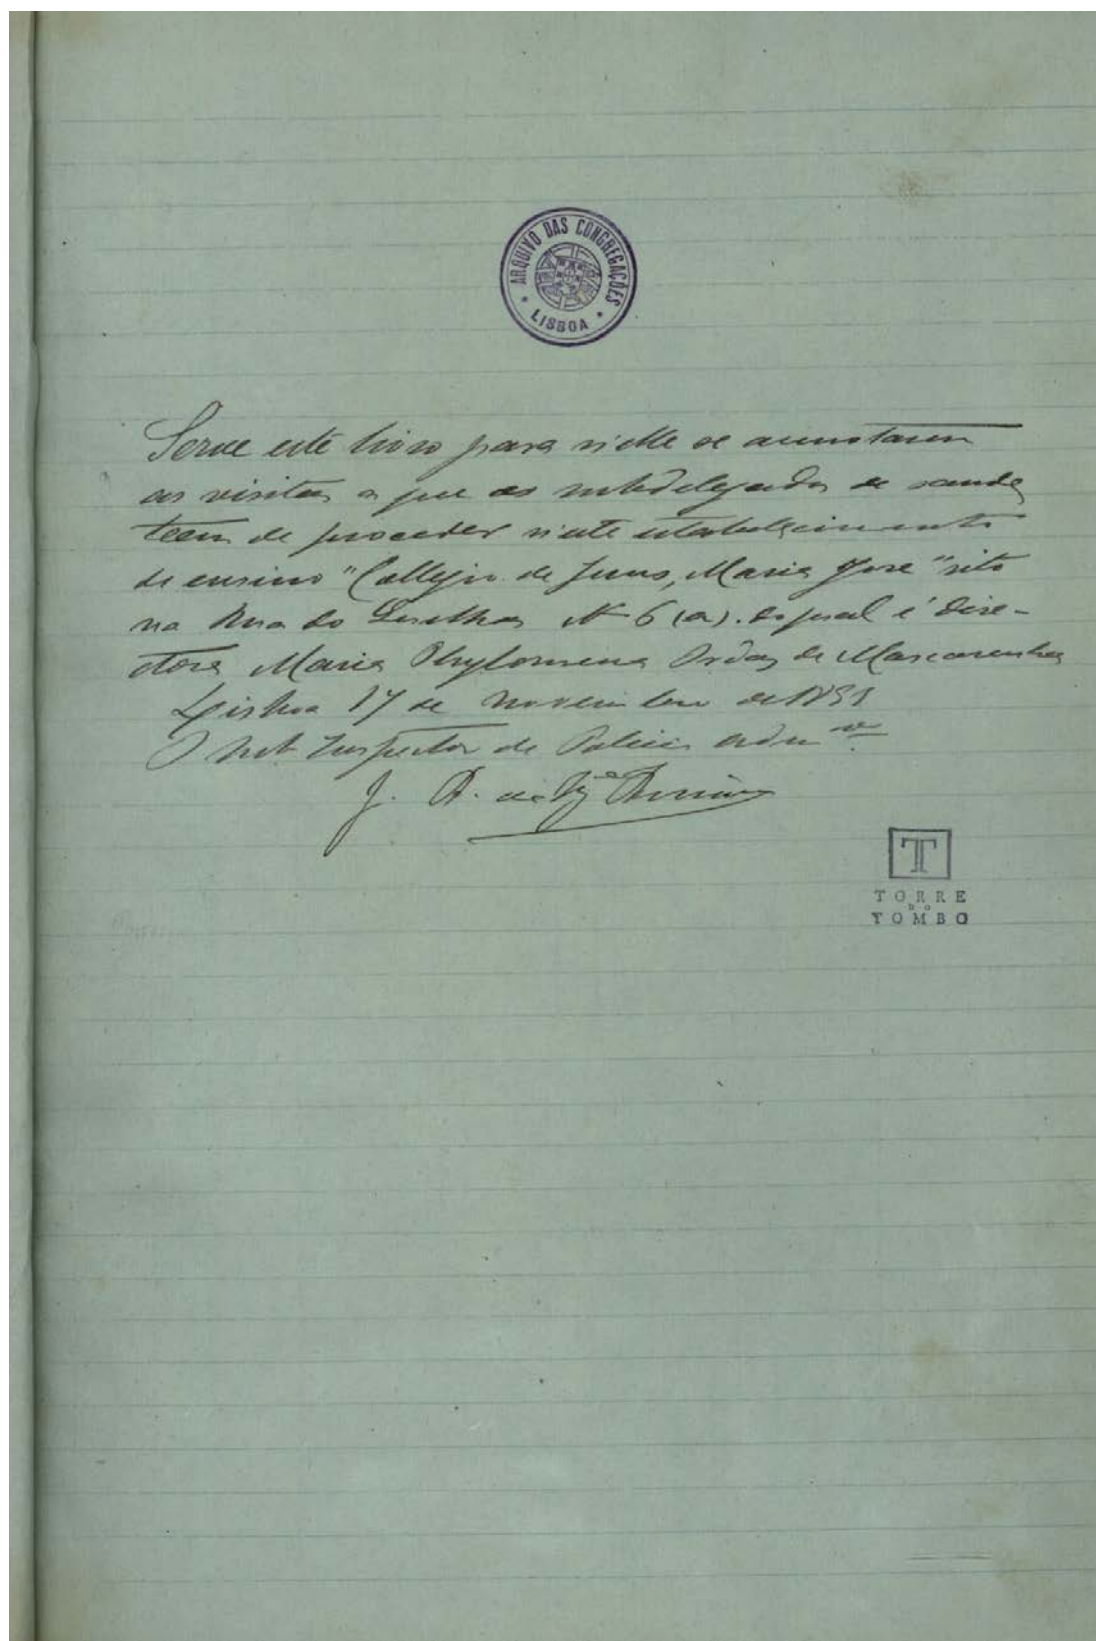 ARQUIVO DAS CONGREGAÇÕES
LISBOA
Serve este livro para n'elle se annotarem
as visitas a que os subdelegados de saude
teem de proceder n'este estabelecimento
de ensino "Collegio de Jesus, Maria José" sito
na Rua do N 6 (a). do qual é dire-
ctora Maria Phylomena de Mascarenhas
Lisboa 17 de novembro de
O Sub Inspector de Policia adm va
J. A. de
T
TORRE
DO
TOMBO